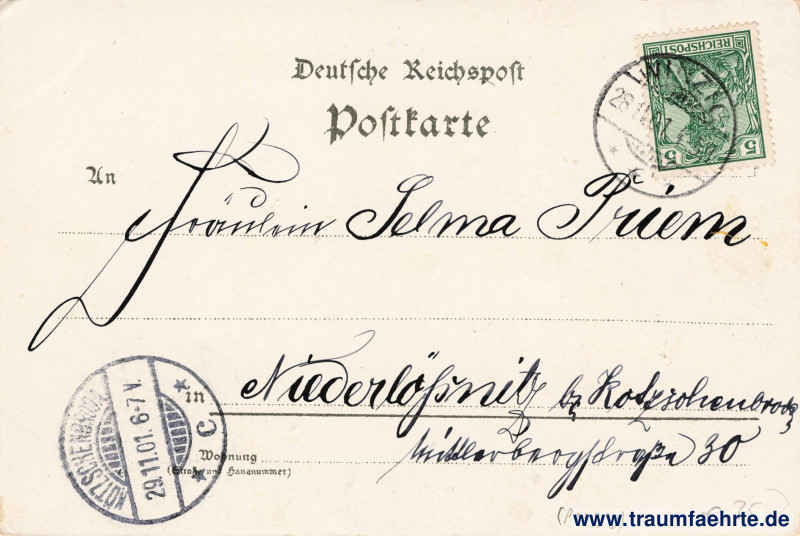 Deutsche Reichspost
Postkarte
REICHSPOST
5 5
28.11.
C
An
Fräulein Selma Priem
in
Niederlößnitz bz Kotzschenbroda
Wohnung
(Straße und Hausnummer)
Mittlerbergstraße 30
KÖTZSCHENBRODA
29.11.01. 6-7 V.
* C *
www.traumfaehrte.de